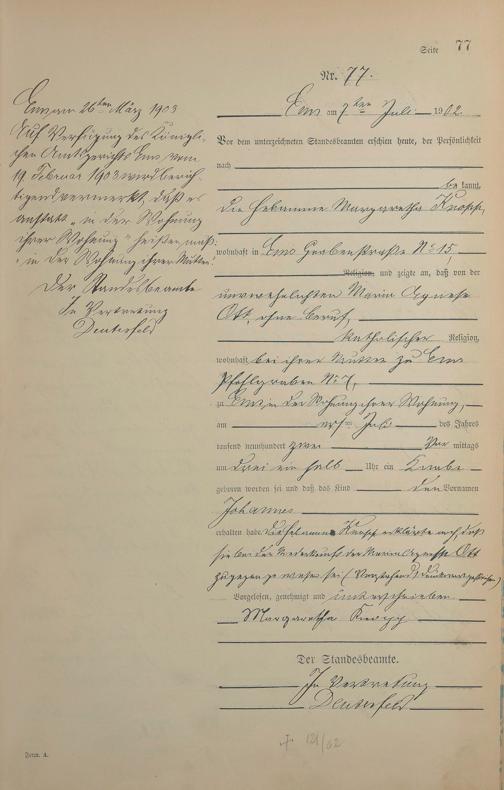 Seite 77
Nr. 77.
Ems am 26ten März 1903
Auf Verfügung des Königli-
chen Amtsgerichts Ems vom
19 Februar 1903 wird berich-
tigend vermerkt, daß es
anstatt "in der Wohnung
ihrer Wohnung" heißen muß:
"in der Wohnung ihrer Mutter."
Der Standesbeamte
In Vertretung
Ems am 7ten Juli 1902.
Vor dem unterzeichneten Standesbeamten erschien heute, der Persönlichkeit
nach
bekannt,
die Hebamme Margaretha Knopp,
wohnhaft in Ems Grabenstraße No 15,
Religion, und zeigte an, daß von der
unverehelichten Maria Agnese
Ott, ohne Beruf,
katholischer Religion,
wohnhaft bei ihrer Mutter zu Ems
Pfahlgraben No 7,
zu Ems, in der Wohnung ihrer Wohnung,
am Juli des Jahres
tausend neunhundert zwei Vor mittags
um drei ein halb Uhr ein Knabe
geboren worden sei und daß das Kind den Vornamen
Johannes
erhalten habe. Die Hebamme Knopp erklärte noch, daß
sie bei der Niederkunft der Maria Agnese Ott
zugegen gewesen sei (Vorstehend gestrichen)
Vorgelesen, genehmigt und unterschrieben
Margaretha Knopp
Der Standesbeamte.
In Vertretung
121/02
Form. A.